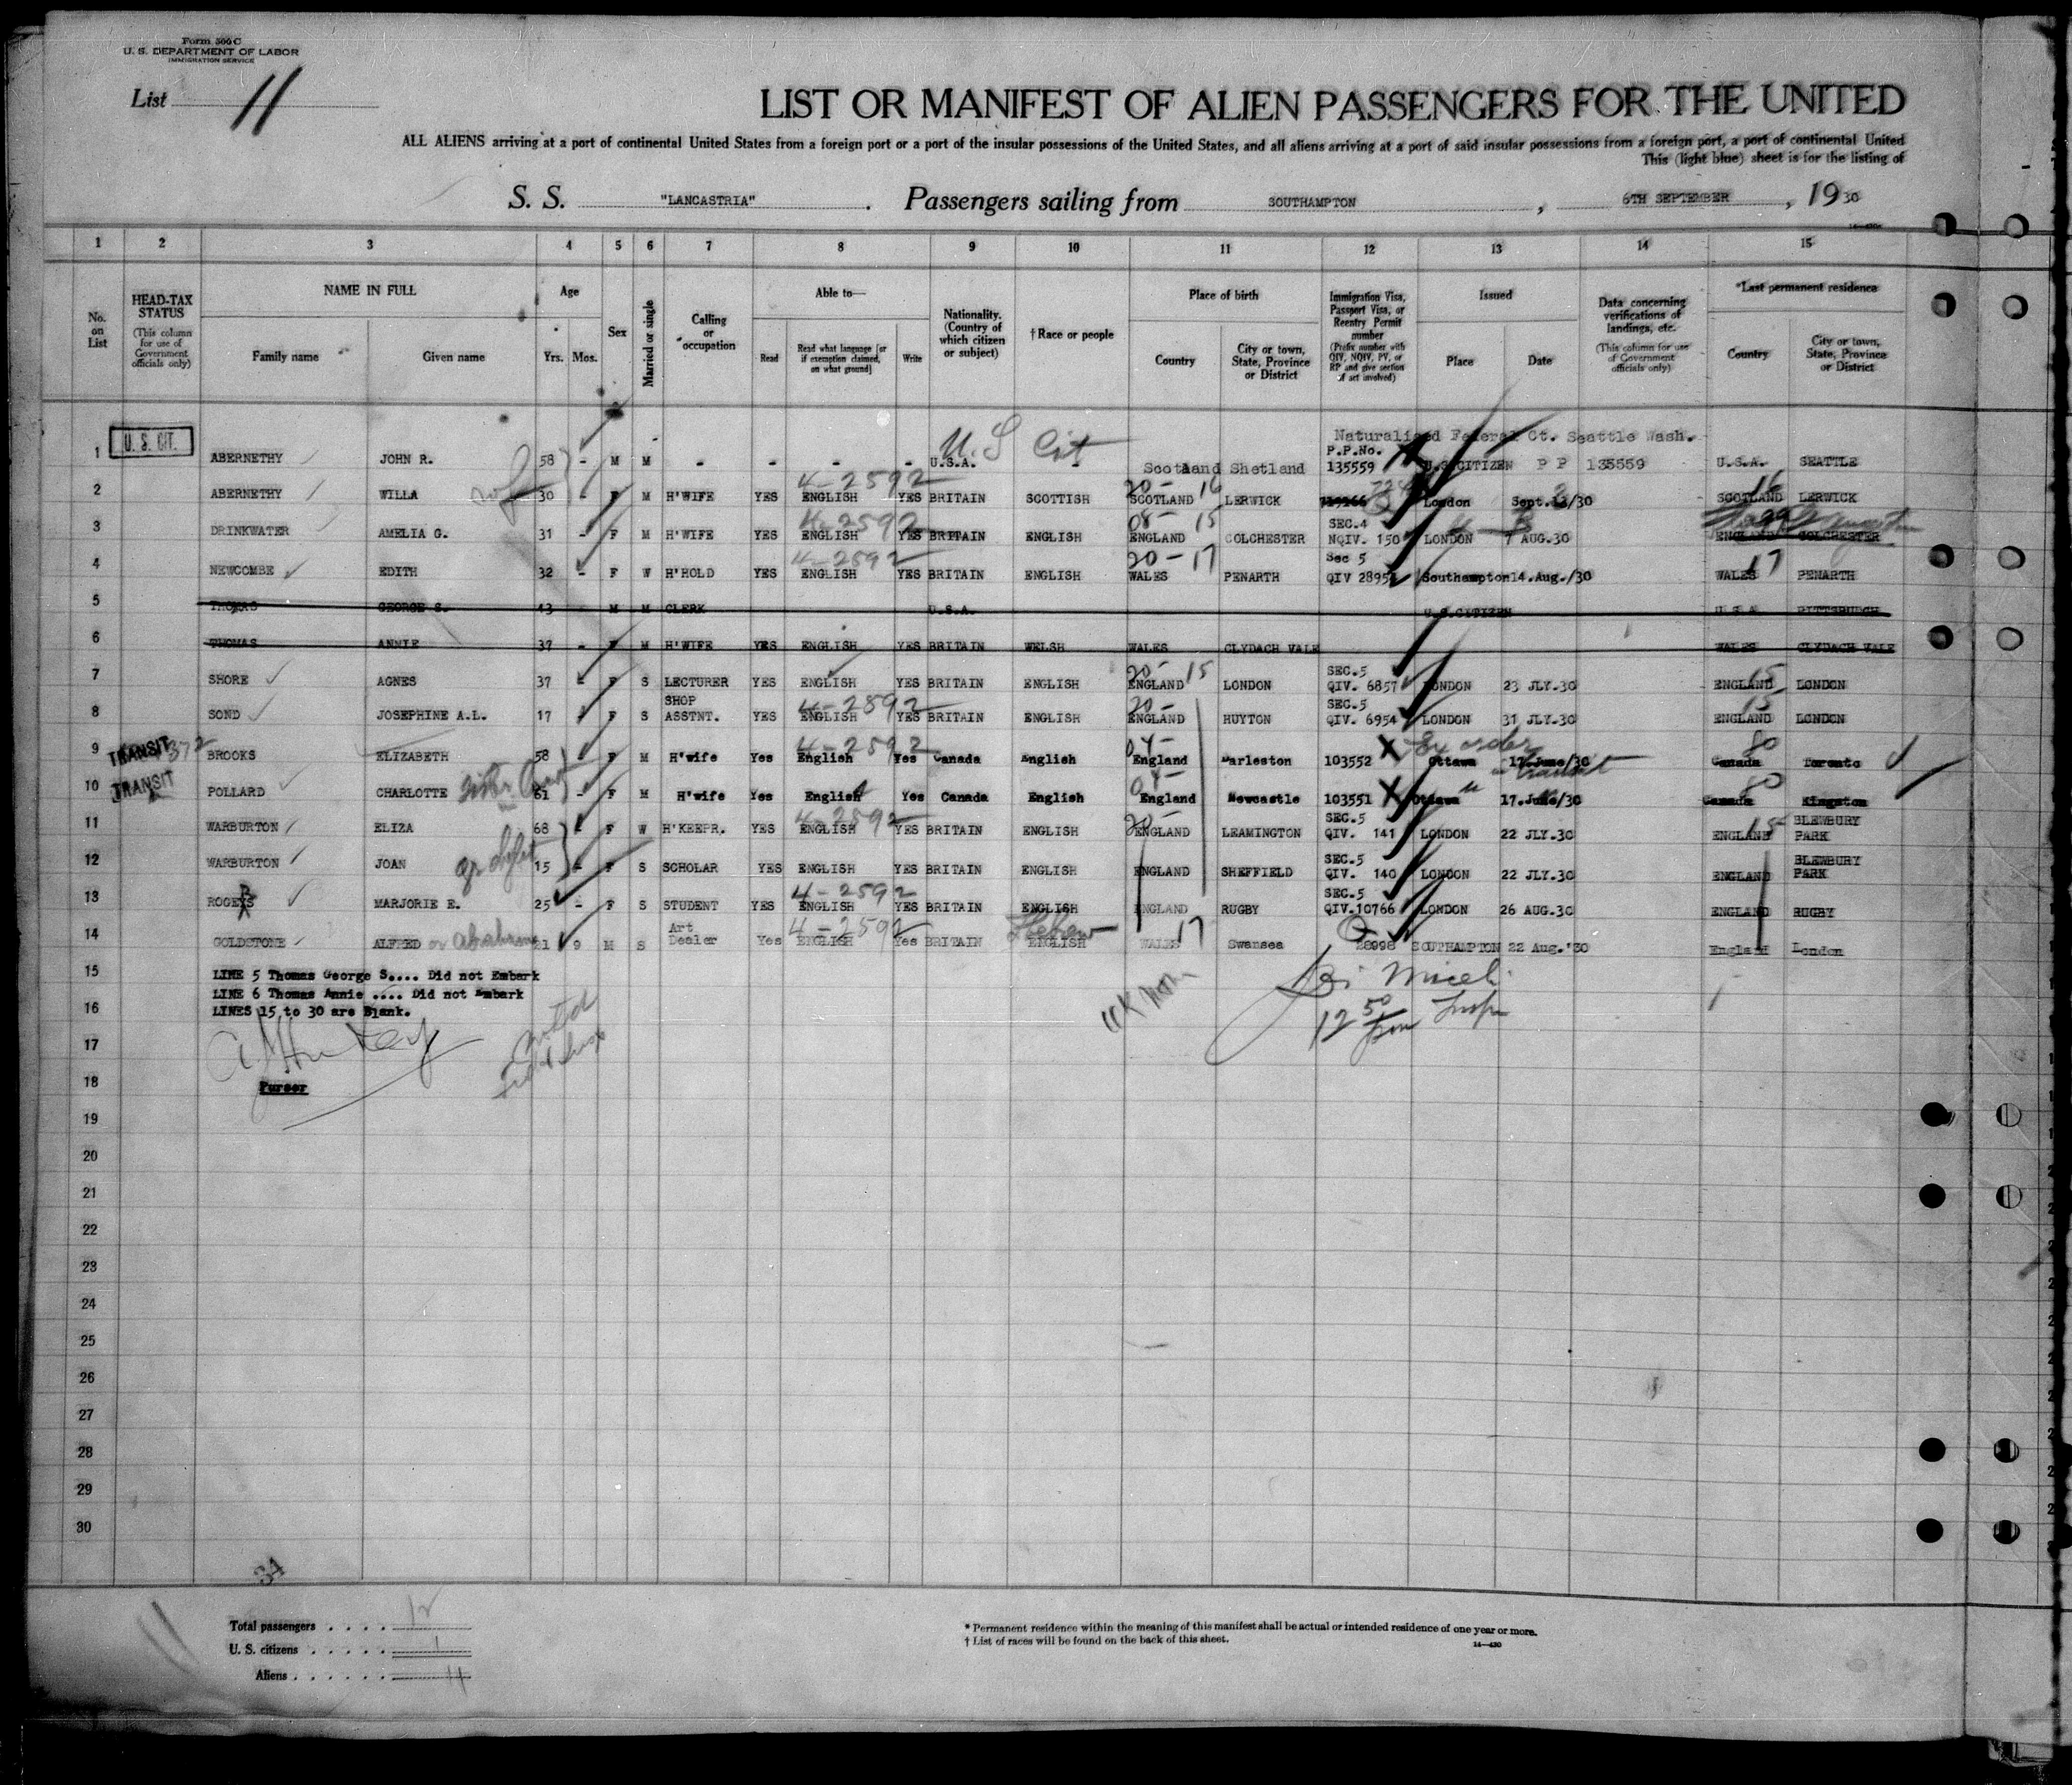 Form 500 C
U. S. DEPARTMENT OF LABOR
IMMIGRATION SERVICE
List 11
LIST OR MANIFEST OF ALIEN PASSENGERS FOR THE UNITED
ALL ALIENS arriving at a port of continental United States from a foreign port or a port of the insular possessions of the United States, and all aliens arriving at a port of said insular possessions from a foreign port, a port of continental United
This (light blue) sheet is for the listing of
S. S. "LANCASTRIA". Passengers sailing from SOUTHAMPTON, 6TH SEPTEMBER, 1930
1 2 3 4 5 6 7 8 9 10 11 12 13 14 15
No. on List
HEAD-TAX STATUS (This column for use of Government officials only)
NAME IN FULL
Family name
Given name
Age
Yrs. Mos.
Sex
Married or single
Calling or occupation
Able to—
Read
Read what language [or if exemption claimed, on what ground]
Write
Nationality. (Country of which citizen or subject)
† Race or people
Place of birth
Country
City or town, State, Province or District
Immigration Visa, Passport Visa, or Reentry Permit number (Prefix number with QIV, NQIV, PV, or RP and give section of act involved)
Issued
Place
Date
Data concerning verifications of landings, etc. (This column for use of Government officials only)
*Last permanent residence
Country
City or town, State, Province or District
U. S. Cit
Naturalized Federal Ct. Seattle Wash.
1 U. S. CIT. ABERNETHY JOHN R. 58 - M M - - - - U.S.A. - Scotland Shetland P.P.No. 135559 U.S.CITIZEN P P 135559 U.S.A. SEATTLE
4-2592
2 ABERNETHY WILLA wife 30 - F M H'WIFE YES ENGLISH YES BRITAIN SCOTTISH 20- 16 SCOTLAND LERWICK London Sept. /30 16 SCOTLAND LERWICK
4-2592
3 DRINKWATER AMELIA G. 31 - F M H'WIFE YES ENGLISH YES BRITAIN ENGLISH 08- 15 ENGLAND COLCHESTER SEC.4 NQIV. 150 LONDON 7 AUG.30 ENGLAND COLCHESTER
4-2592
4 NEWCOMBE EDITH 32 - F W H'HOLD YES ENGLISH YES BRITAIN ENGLISH 20-17 WALES PENARTH Sec 5 QIV 28954 Southampton 14.Aug./30 17 WALES PENARTH
5 THOMAS GEORGE S. 43 M M CLERK U.S.A. U.S.CITIZEN U S A PITTSBURGH
6 THOMAS ANNIE 37 - F M H'WIFE YES ENGLISH YES BRITAIN WELSH WALES CLYDACH VALE WALES CLYDACH VALE
7 SHORE AGNES 37 - F S LECTURER YES ENGLISH YES BRITAIN ENGLISH 20- 15 ENGLAND LONDON SEC.5 QIV. 6857 LONDON 23 JLY.30 15 ENGLAND LONDON
4-2592
8 SOND JOSEPHINE A.L. 17 F S SHOP ASSTNT. YES ENGLISH YES BRITAIN ENGLISH 20- ENGLAND HUYTON SEC.5 QIV. 6954 LONDON 31 JLY.30 15 ENGLAND LONDON
4-2592
9 TRANSIT 372 BROOKS ELIZABETH 58 - F M H'wife Yes English Yes Canada English 04- England Darleston 103552 X Ottawa 17.June/30 80 Canada Toronto
10 TRANSIT POLLARD CHARLOTTE 61 - F M H'wife Yes English Yes Canada English 04- England Newcastle 103551 X Ottawa 17.June/30 80 Canada Kingston
4-2592
11 WARBURTON ELIZA 68 - F W H'KEEPR. YES ENGLISH YES BRITAIN ENGLISH 20- ENGLAND LEAMINGTON SEC.5 QIV. 141 LONDON 22 JLY.30 15 ENGLAND BLEWBURY PARK
12 WARBURTON JOAN 15 - F S SCHOLAR YES ENGLISH YES BRITAIN ENGLISH ENGLAND SHEFFIELD SEC.5 QIV. 140 LONDON 22 JLY.30 ENGLAND BLEWBURY PARK
4-2592
13 ROGERS MARJORIE E. 25 - F S STUDENT YES ENGLISH YES BRITAIN ENGLISH ENGLAND RUGBY SEC.5 QIV.10766 LONDON 26 AUG.30 ENGLAND RUGBY
4-2592
14 GOLDSTONE ALFRED or Abraham 21 9 M S Art Dealer Yes ENGLISH Yes BRITAIN Hebrew ENGLISH 17 WALES Swansea Q 28998 SOUTHAMPTON 22 Aug.'30 England London
15 LINE 5 Thomas George S.... Did not Embark
LINE 6 Thomas Annie .... Did not Embark
16 LINES 15 to 30 are Blank.
17
18 Purser
19
20
21
22
23
24
25
26
27
28
29
30
34
Total passengers . . . . 12
U. S. citizens . . . . . 1
Aliens . . . . . . 11
* Permanent residence within the meaning of this manifest shall be actual or intended residence of one year or more.
† List of races will be found on the back of this sheet.
14—430